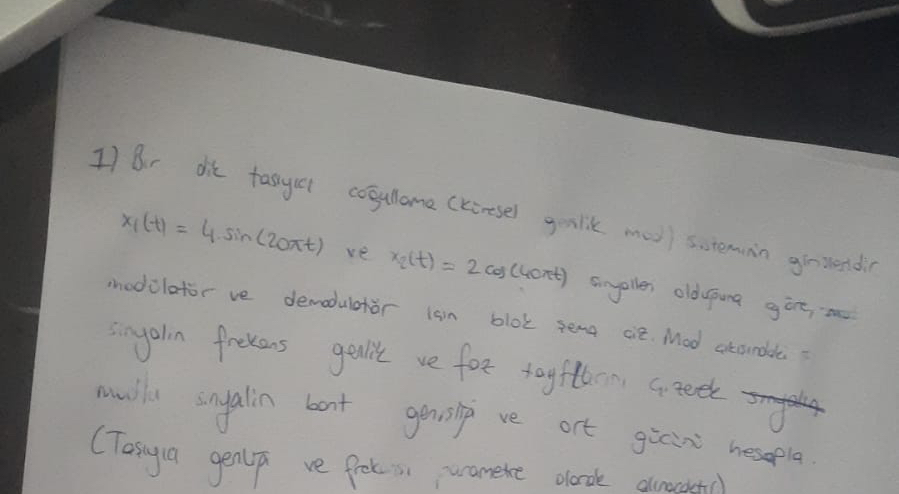 1) Bir dik taşıyıcı çoğullama (Küresel genlik mod) sisteminin girişleridir
x₁(t) = 4.sin(20πt) ve x₂(t) = 2 cos(40πt) sinyalleri olduğuna göre,
modülatör ve demodulatör için blok şema çiz. Mod çıkışındaki
sinyalin frekans genlik ve faz tayflarını çizerek
sinyalin bant genişliği ve ort gücünü hesapla.
(Taşıyıcı genliği ve frekansı parametre olarak alınacaktır)